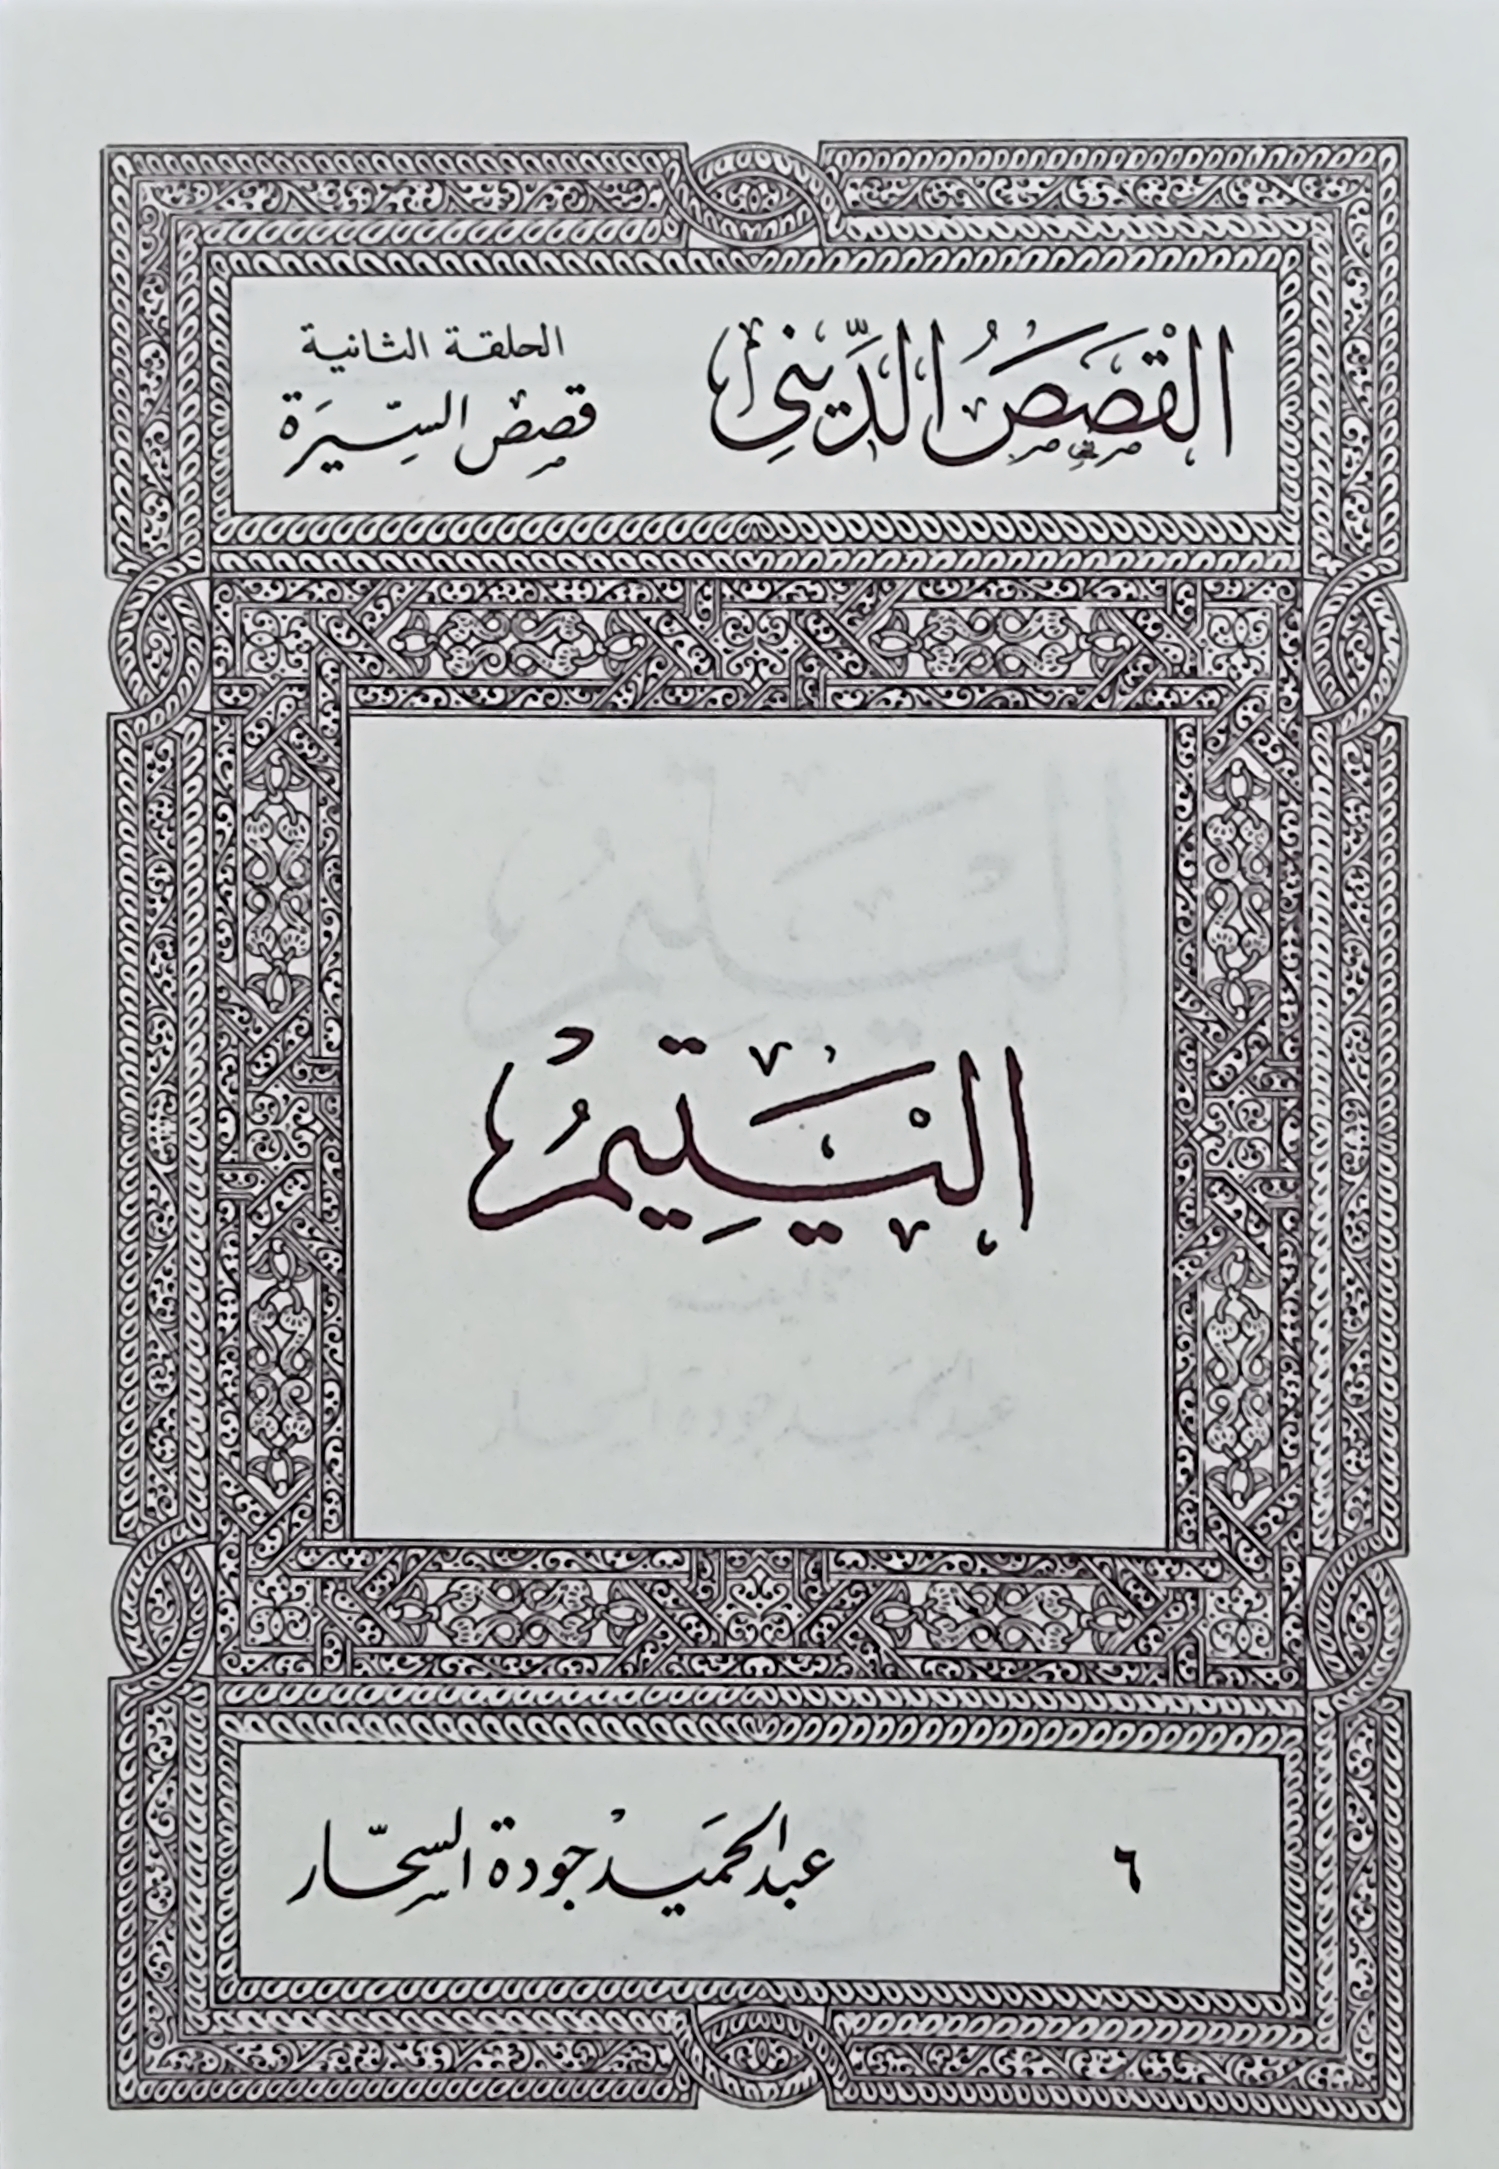 القَصَصُ الدِّينِي
الحلقة الثانية
قصص السِّيرَة
اليَتِيمُ
٦
عبد الحَميدْ جودة السحّار